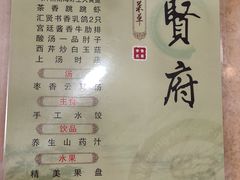 茶香跳跳虾
汇贤书香乳鸽2只
宫廷酱香牛肋排
酸汤一品肘子
西芹炒白玉菇
上汤时蔬
汤
枣香云艾汤
主食
手工水饺
饮品
养生山药汁
水果
精美果盘
菜單
賢府